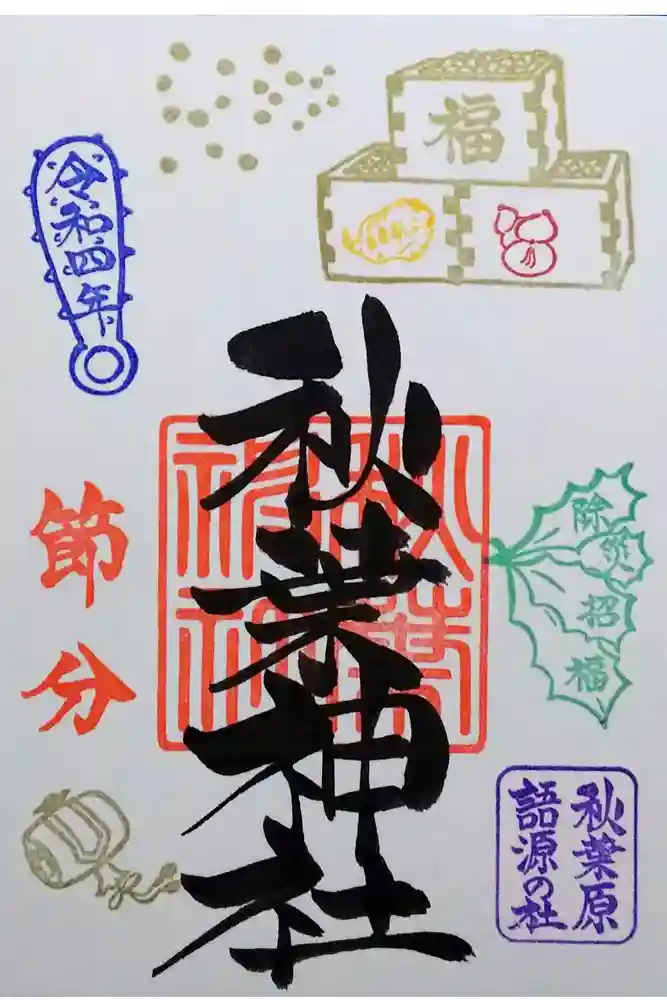 福
令和四年
秋葉神社
秋葉
神社
節分
除災招福
秋葉原
語源の社